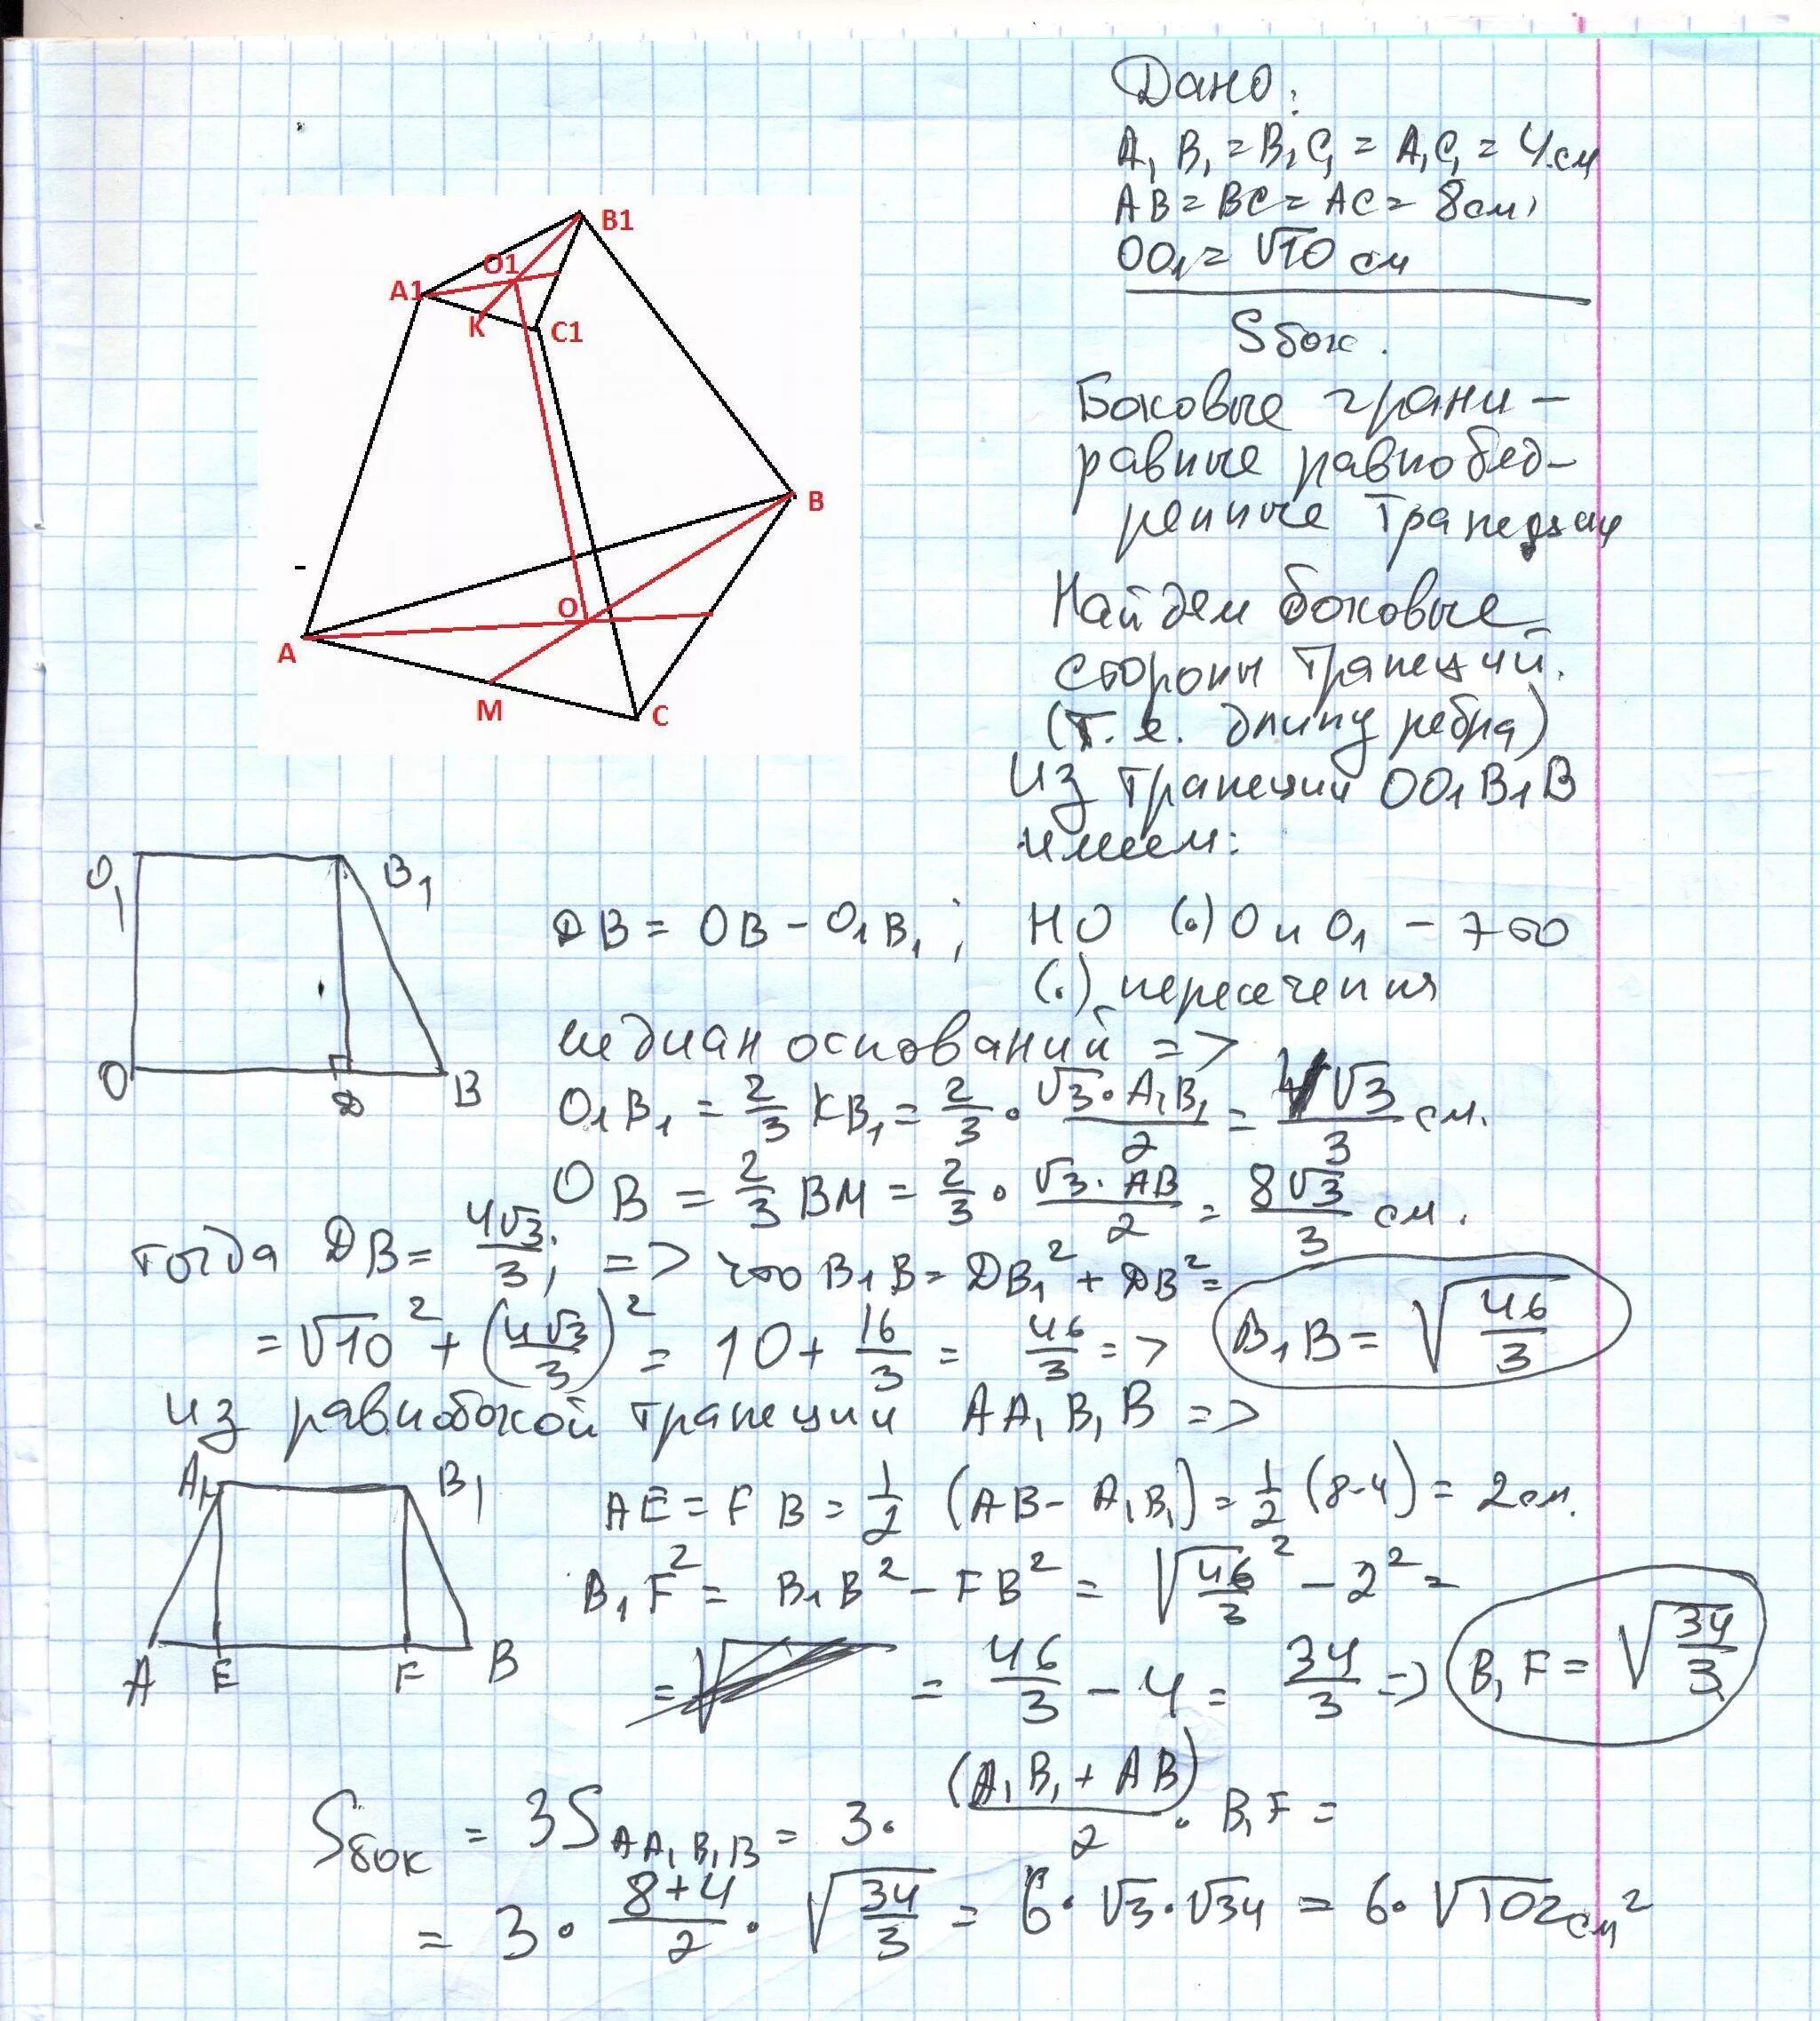 Дано:
A₁B₁ = B₁C₁ = A₁C₁ = 4 см
AB = BC = AC = 8 см,
OO₁ = √10 см
Sбок.
Боковые грани –
равные равнобед-
ренные трапеции
Найдем боковые
стороны трапеций.
(т.е. длину ребра)
Из трапеции OO₁B₁B
имеем:
B1
O1
A1
K
C1
B
O
A
M
C
O₁
B₁
O
D
B
DB = OB – O₁B₁; НО (·) O и O₁ – это
(·) пересечения
медиан оснований =>
O₁B₁ = 2/3 KB₁ = 2/3 · √3·A₁B₁/2 = 4√3/3 см.
OB = 2/3 BM = 2/3 · √3·AB/2 = 8√3/3 см.
тогда DB = 4√3/3; => что B₁B = DB₁² + DB² =
= √10² + (4√3/3)² = 10 + 16/3 = 46/3 => B₁B = √(46/3)
из равнобокой трапеции AA₁B₁B =>
A₁
B₁
A
E
F
B
AE = FB = 1/2 (AB – A₁B₁) = 1/2 (8-4) = 2 см.
B₁F² = B₁B² – FB² = √(46/3)² – 2² =
= = 46/3 – 4 = 34/3 => B₁F = √(34/3)
Sбок = 3S AA₁B₁B = 3 · (A₁B₁ + AB)/2 · B₁F =
= 3 · 8+4/2 · √(34/3) = 6 · √3 · √34 = 6 · √102 см²